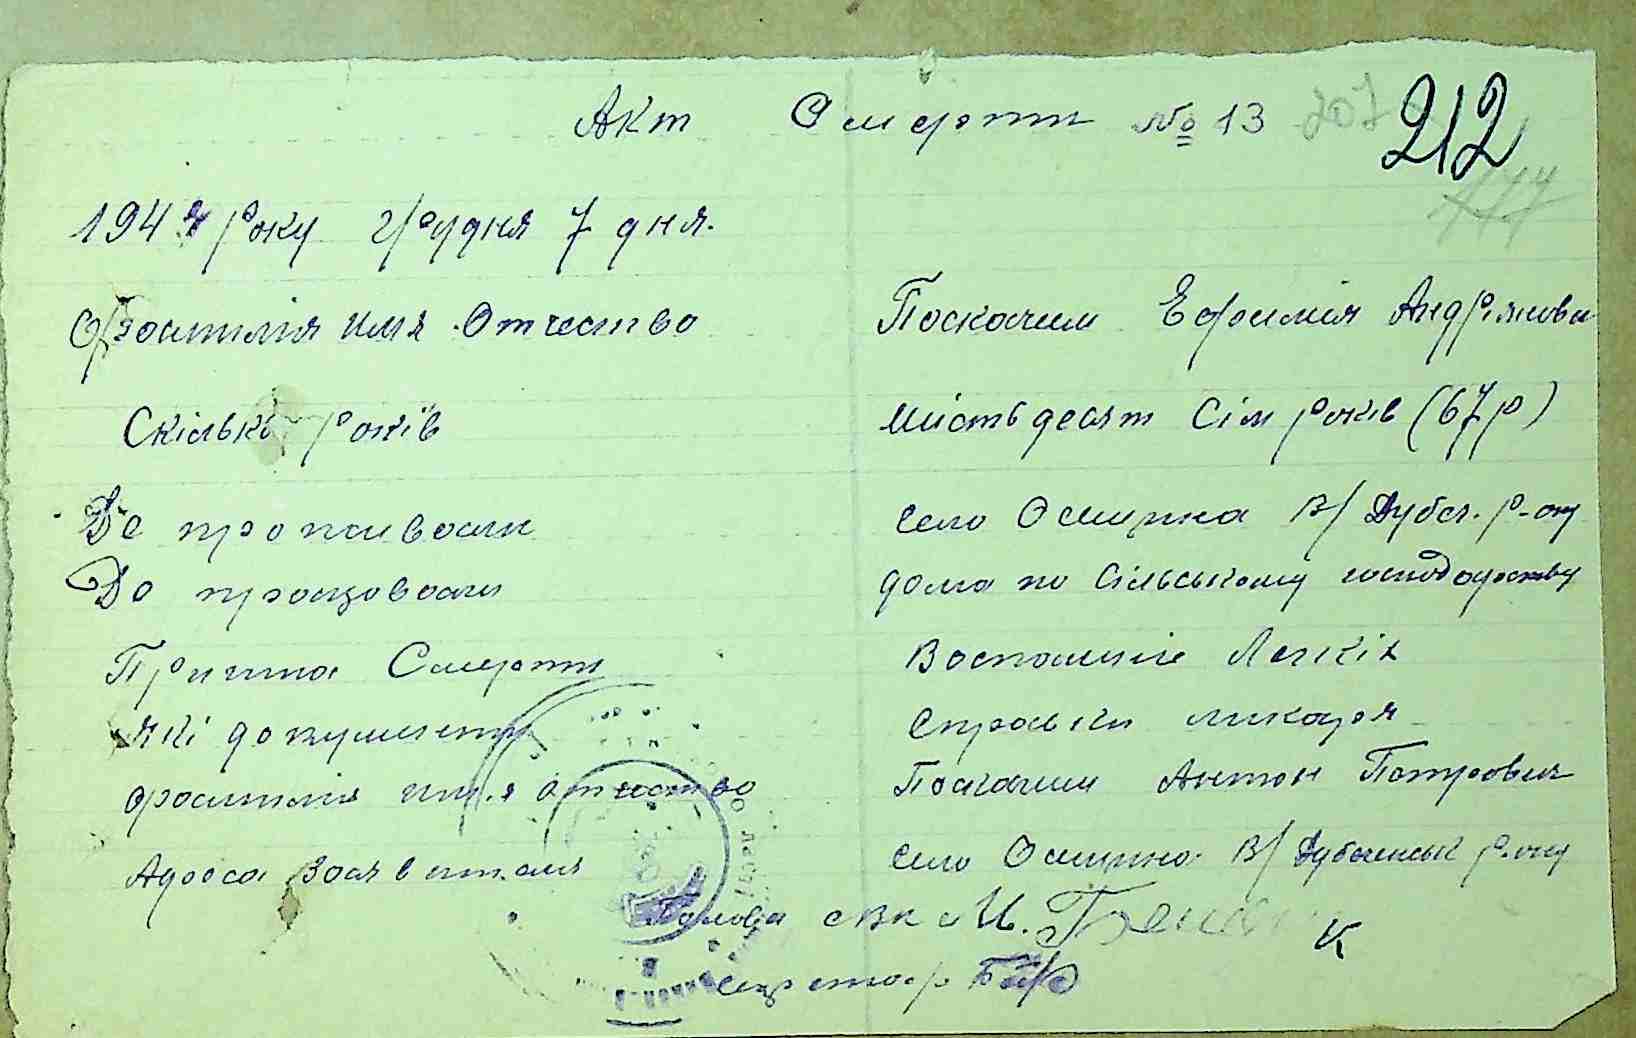 Акт Смерти № 13 207 212
1944 року грудня 7 дня.
Фаамилия имя Отчество Поскачим Ефимия Андріянови
Скільки років шістьдесят Сім років (67 р)
Де проживали село Осмирка В/Дубеч. р-ну
Де працовали дома по Сільському господарству
Причина Смерти Воспаминіе Легкіх
Які документи Справки ликаря
фаамилия имя отчество Поскачим Антон Петрович
Адреса Заявителя село В/Дубеченськ р-ну
Голова СВК
Секретар